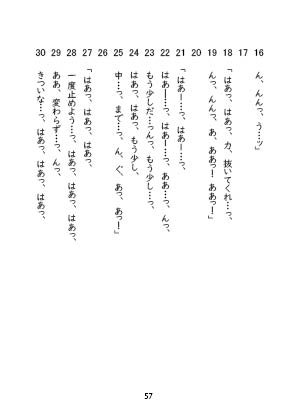 16 ん、んんっ、う…ッ」
17
18 「はあっ、はあっ、力、抜いてくれ…っ、
19 んっ、んんっ、あ、ああっ! ああっ!」
20
21 「はあー…っ、はあー…っ、
22 はあー…っ、はあー…っ、ああ…っ、んっ、
23 もう少しだ…っんっ、もう少し…っ、
24 はあっ、はあっ、もう少し、
25 中…っ、まで…っ、ん、ぐ、あっ、あっ!」
26
27 「はあっ、はあっ、はあっ、
28 一度止めよう…っ、はあっ、はあっ、はあっ、
29 ああ、変わらず…っ、んっ、
30 きついな…っ、はあっ、はあっ、はあっ、
57